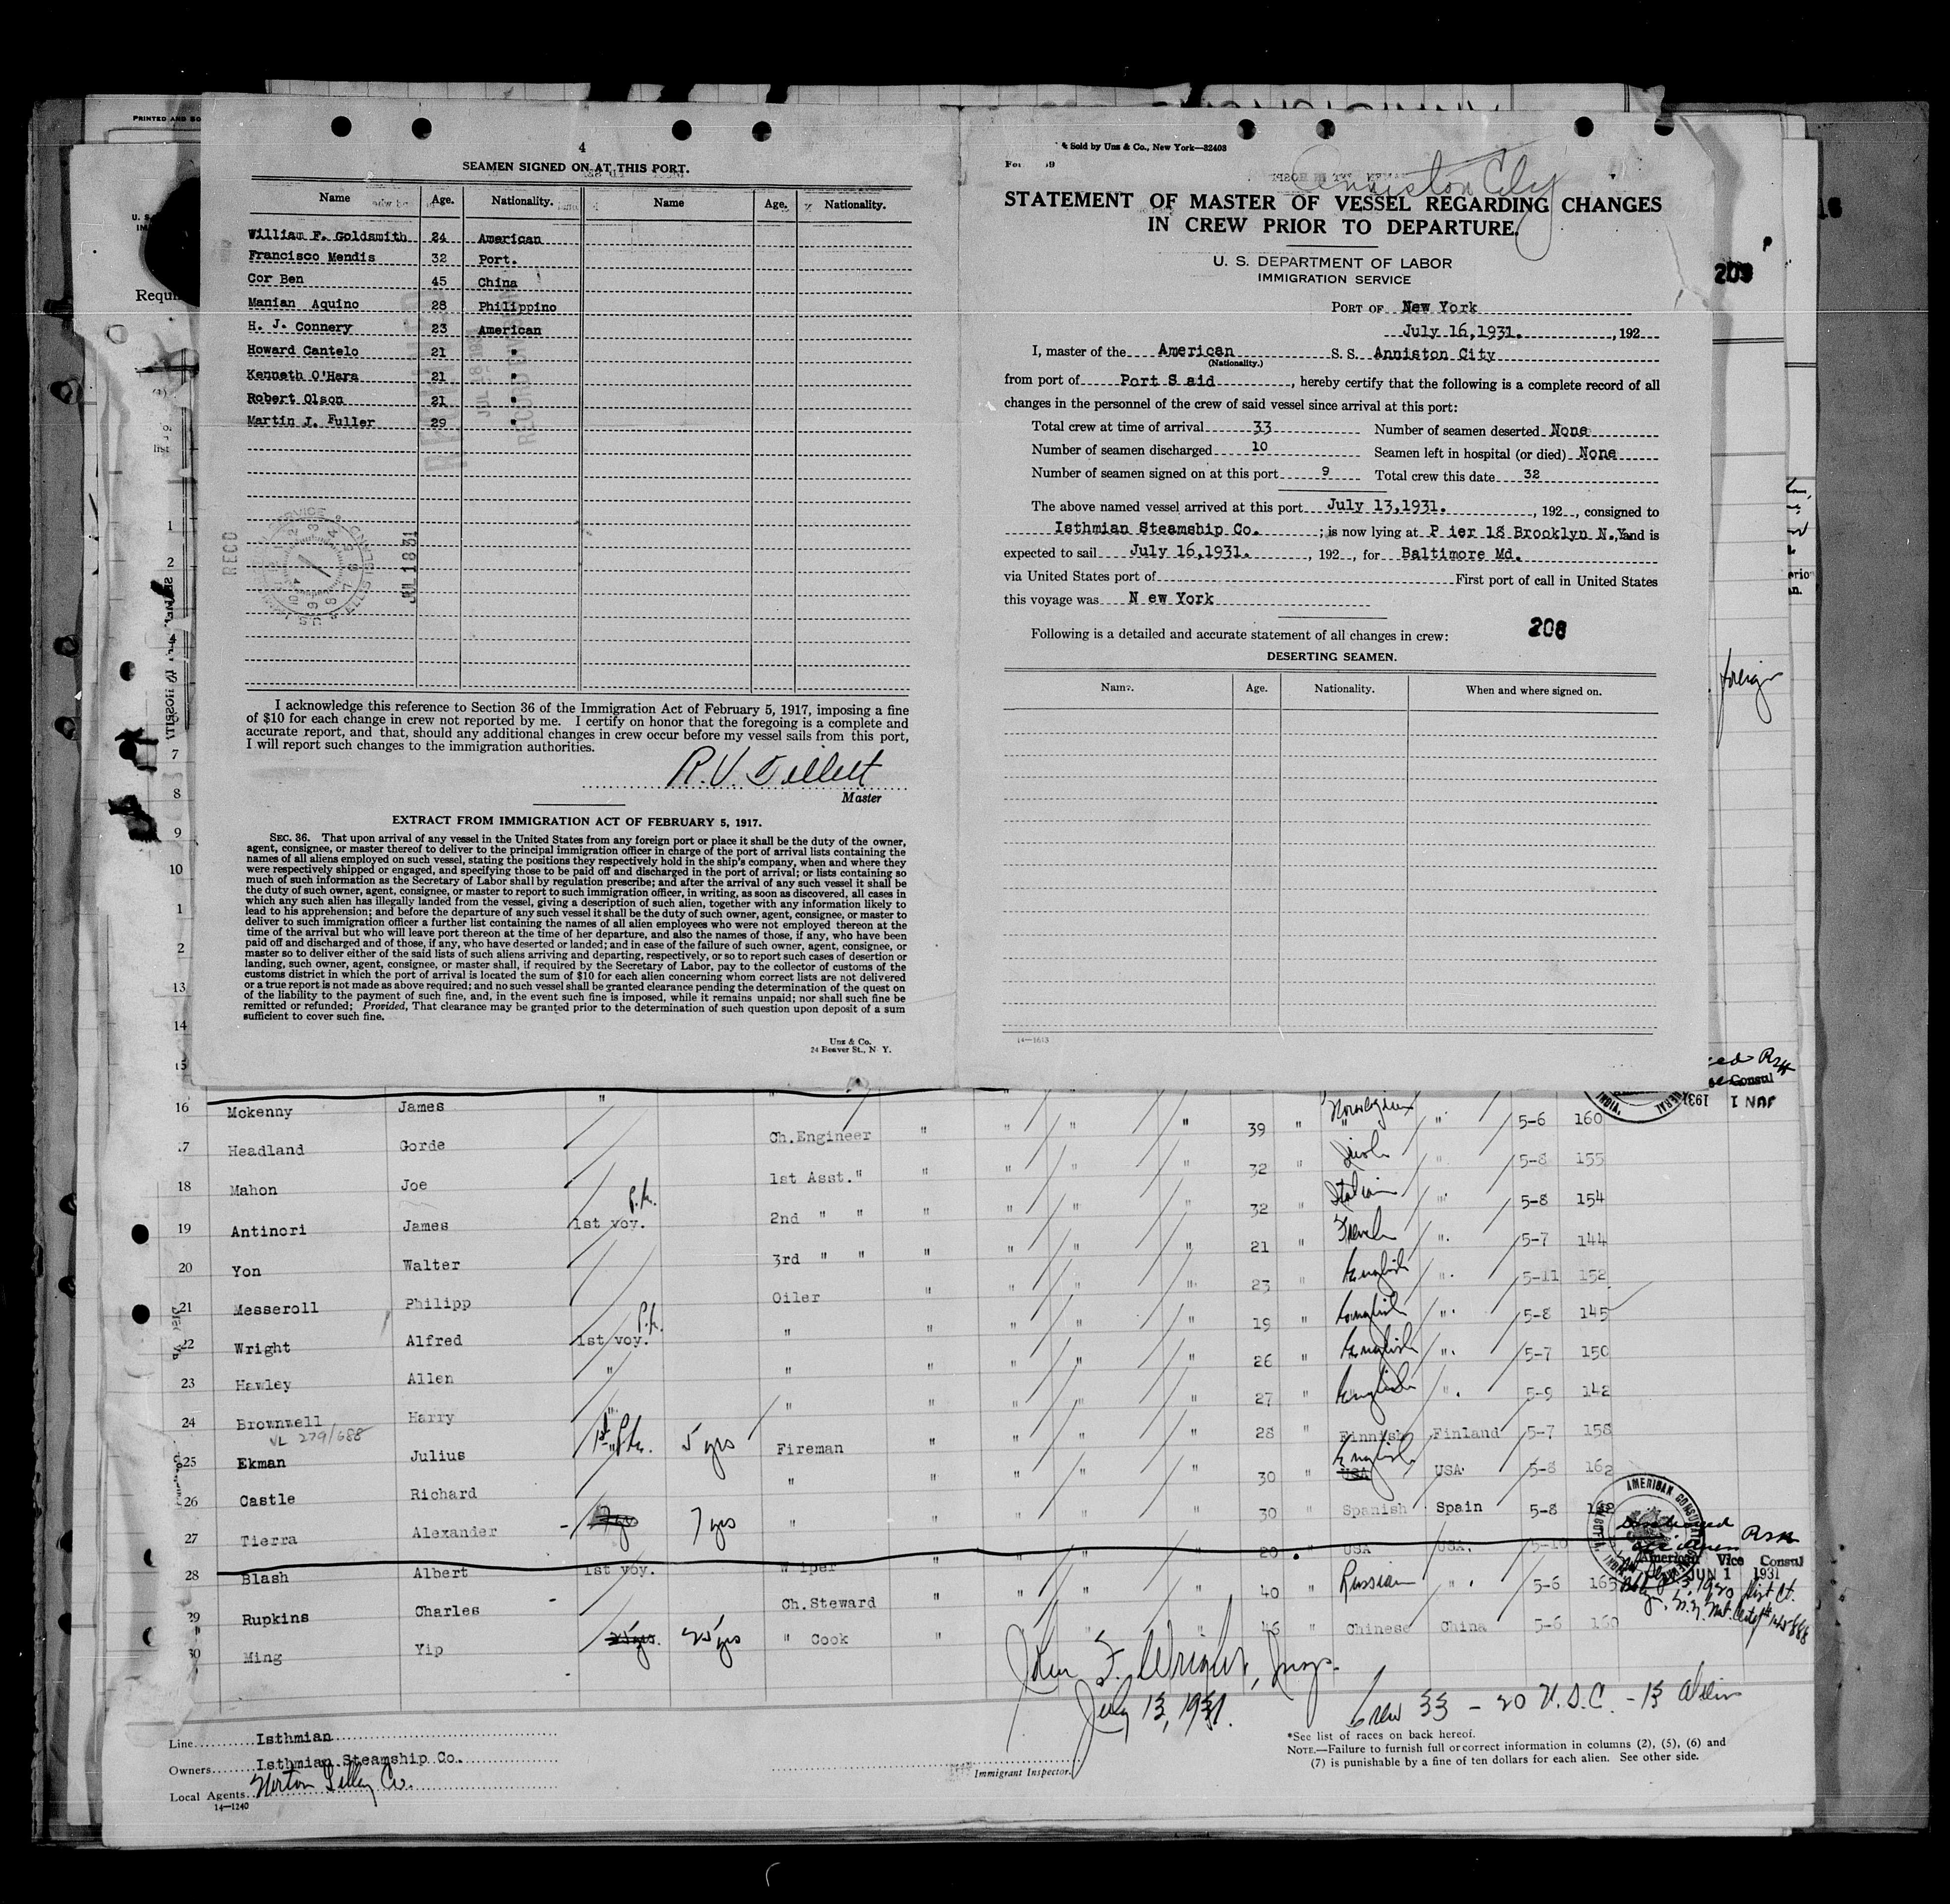 PRINTED AND SO
4
SEAMEN SIGNED ON AT THIS PORT.
Name Age. Nationality. Name Age. Nationality.
William F. Goldsmith 24 American
Francisco Mendis 32 Port.
Cor Ben 45 China
Manian Aquino 28 Philippino
H. J. Connery 23 American
Howard Cantelo 21 "
Kenneth O'Hara 21 "
Robert Olson 21 "
Martin J. Fuller 29 "
RECD
JUL 18 31
I acknowledge this reference to Section 36 of the Immigration Act of February 5, 1917, imposing a fine
of $10 for each change in crew not reported by me. I certify on honor that the foregoing is a complete and
accurate report, and that, should any additional changes in crew occur before my vessel sails from this port,
I will report such changes to the immigration authorities.
R.V. Tillett
Master
EXTRACT FROM IMMIGRATION ACT OF FEBRUARY 5, 1917.
SEC. 36. That upon arrival of any vessel in the United States from any foreign port or place it shall be the duty of the owner,
agent, consignee, or master thereof to deliver to the principal immigration officer in charge of the port of arrival lists containing the
names of all aliens employed on such vessel, stating the positions they respectively hold in the ship's company, when and where they
were respectively shipped or engaged, and specifying those to be paid off and discharged in the port of arrival; or lists containing so
much of such information as the Secretary of Labor shall by regulation prescribe; and after the arrival of any such vessel it shall be
the duty of such owner, agent, consignee, or master to report to such immigration officer, in writing, as soon as discovered, all cases in
which any such alien has illegally landed from the vessel, giving a description of such alien, together with any information likely to
lead to his apprehension; and before the departure of any such vessel it shall be the duty of such owner, agent, consignee, or master to
deliver to such immigration officer a further list containing the names of all alien employees who were not employed thereon at the
time of the arrival but who will leave port thereon at the time of her departure, and also the names of those, if any, who have been
paid off and discharged and of those, if any, who have deserted or landed; and in case of the failure of such owner, agent, consignee, or
master so to deliver either of the said lists of such aliens arriving and departing, respectively, or so to report such cases of desertion or
landing, such owner, agent, consignee, or master shall, if required by the Secretary of Labor, pay to the collector of customs of the
customs district in which the port of arrival is located the sum of $10 for each alien concerning whom correct lists are not delivered
or a true report is not made as above required; and no such vessel shall be granted clearance pending the determination of the quest on
of the liability to the payment of such fine, and, in the event such fine is imposed, while it remains unpaid; nor shall such fine be
remitted or refunded; Provided, That clearance may be granted prior to the determination of such question upon deposit of a sum
sufficient to cover such fine.
Unz & Co.
24 Beaver St., N Y.
& Sold by Unz & Co., New York—32403
Anniston City
STATEMENT OF MASTER OF VESSEL REGARDING CHANGES
IN CREW PRIOR TO DEPARTURE.
U. S. DEPARTMENT OF LABOR
IMMIGRATION SERVICE
PORT OF New York
July 16,1931. , 192
I, master of the American S. S. Anniston City
(Nationality.)
from port of Port S aid , hereby certify that the following is a complete record of all
changes in the personnel of the crew of said vessel since arrival at this port:
Total crew at time of arrival 33 Number of seamen deserted None
Number of seamen discharged 10 Seamen left in hospital (or died) None
Number of seamen signed on at this port 9 Total crew this date 32
The above named vessel arrived at this port July 13,1931. , 192 , consigned to
Isthmian Steamship Co. ; is now lying at P ier 18 Brooklyn N.Y. and is
expected to sail July 16,1931. , 192 , for Baltimore Md.
via United States port of First port of call in United States
this voyage was N ew York
Following is a detailed and accurate statement of all changes in crew: 208
DESERTING SEAMEN.
Name. Age. Nationality. When and where signed on.
14—1613
209
foreign
16 Mckenny James " " 39 " Norwegian " 5-6 160
17 Headland Gorde Ch.Engineer " " " " 32 " " 5-8 155
18 Mahon Joe 1st Asst." " " " " 32 " Italian " 5-8 154
19 Antinori James 1st voy. 2nd " " " " " " 21 " French " 5-7 144
20 Yon Walter 3rd " " " " " " 23 " English " 5-11 152
21 Messeroll Philipp Oiler " " " " 19 " English " 5-8 145
22 Wright Alfred 1st voy. " " " " " 26 " English " 5-7 150
23 Hawley Allen " " " " " " 27 " English " 5-9 142
24 Brownwell Harry " " " " " " 28 " Finnish Finland 5-7 158
VL 279/688
25 Ekman Julius 5 yrs Fireman " " " " 30 " USA English USA 5-8 162
26 Castle Richard " " " " " 30 " Spanish Spain 5-8 162
27 Tierra Alexander 7 yrs " " " " " 20 " USA USA. 5-10
28 Blash Albert 1st voy. Wiper " " " " 40 " Russian " 5-6 165
29 Rupkins Charles Ch.Steward " " " " 46 " Chinese China 5-6 160
30 Ming Yip 25 yrs. 25 yrs " Cook "
AMERICAN CONSULATE
American Vice Consul
JUN 1 1931
John F. Wright, Insp.
July 13, 1931.
Crew 33 - 20 U.S.C. - 13 Aliens
Line Isthmian
Owners Isthmian Steamship Co.
Local Agents Norton Lilly Co.
14—1240
Immigrant Inspector.
*See list of races on back hereof.
NOTE.—Failure to furnish full or correct information in columns (2), (5), (6) and
(7) is punishable by a fine of ten dollars for each alien. See other side.